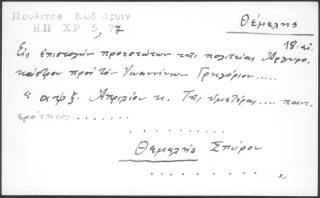 Πουλίτσα Κωδ Δουιν
ΗΠ ΧΡ 5, 77
Θέμελης
18 αἰ.
Εἰς ἐπιστολὴν προεστώτων τῆς πολιτείας Ἀργυρο-
κάστρου πρὸς τὸν Ἰωαννίνων Γρηγόριον....
"αψξ. Ἀπριλίου κ. Τῆς ὑμετέρας... πανι-
ερότητος.......
.........
Θεμελῆς Σπύρου
.......... "